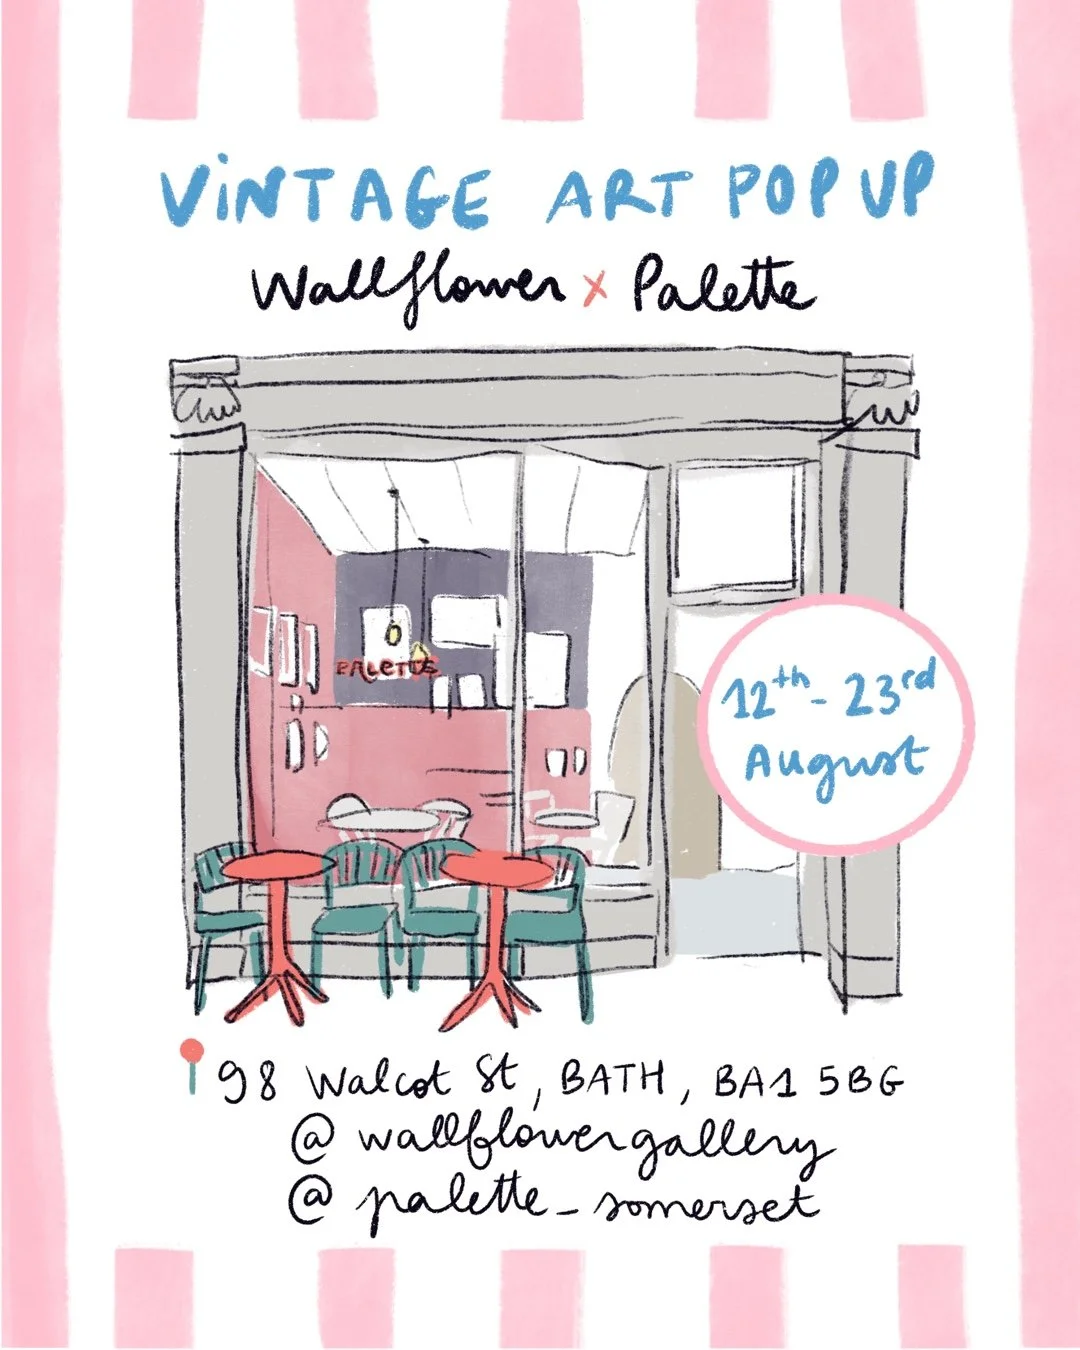 VINTAGE ART POP UP
Wallflower x Palette
PALETTE
12th - 23rd
August
98 Walcot St, BATH, BA1 5BG
@wallflowergallery
@palette_somerset